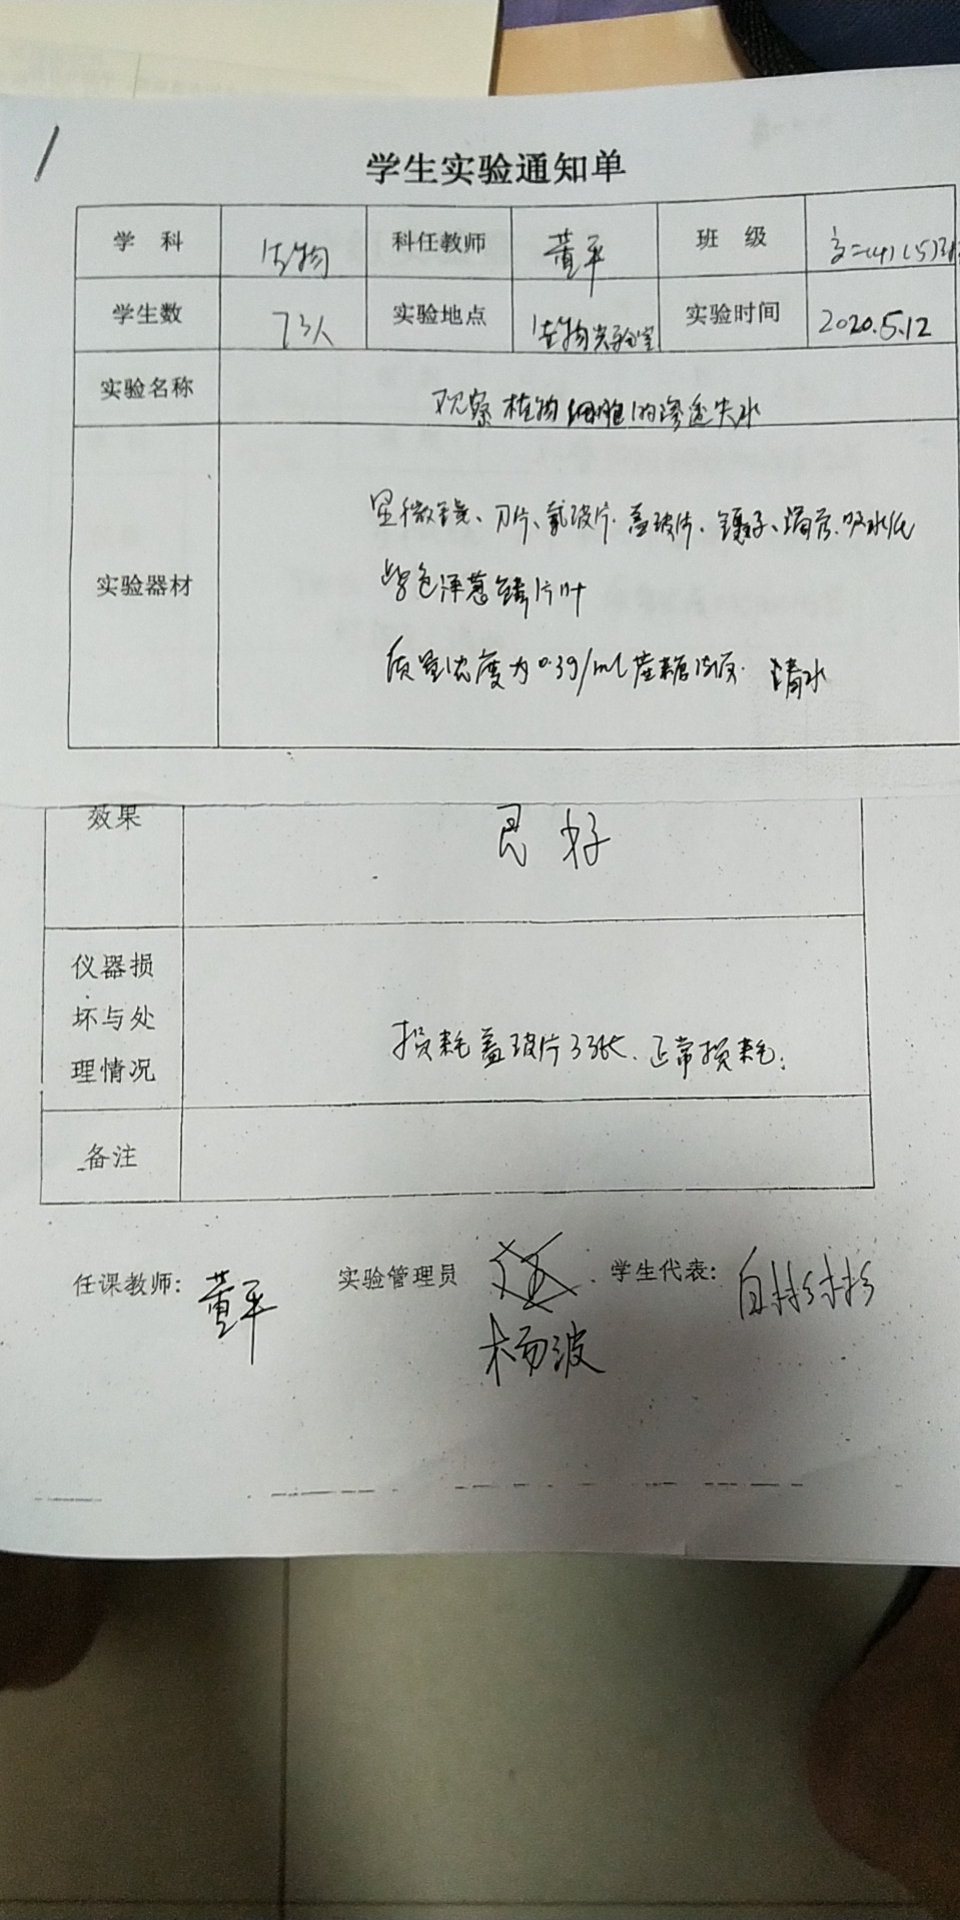 学生实验通知单
学 科 生物 科任教师 黄平 班 级 高二(4)(5)班
学生数 73人 实验地点 生物实验室 实验时间 2020.5.12
实验名称 观察植物细胞的渗透失水
实验器材 显微镜、刀片、载玻片、盖玻片、镊子、滴管、吸水纸
紫色洋葱鳞片叶
质量浓度为0.3g/ml蔗糖溶液. 清水
效果 良好
仪器损
坏与处
理情况 损耗盖玻片3张、正常损耗.
备注
任课教师: 黄平 实验管理员 杨波 学生代表: 白彬彬